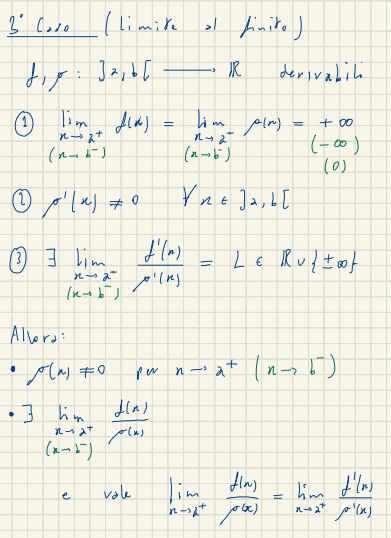 3° Caso (limite al finito)
f, g : ]a, b[ ⟶ ℝ derivabili
① lim f(x) = lim g(x) = +∞
x→a⁺ x→a⁺ (-∞)
(x→b⁻) (x→b⁻) (0)
② g'(x) ≠ 0 ∀ x ∈ ]a, b[
③ ∃ lim f'(x)/g'(x) = L ∈ ℝ ∪ {±∞}
x→a⁺
(x→b⁻)
Allora:
• g(x) ≠ 0 per x→a⁺ (x→b⁻)
• ∃ lim f(x)/g(x)
x→a⁺
(x→b⁻)
e vale lim f(x)/g(x) = lim f'(x)/g'(x)
x→a⁺ x→a⁺